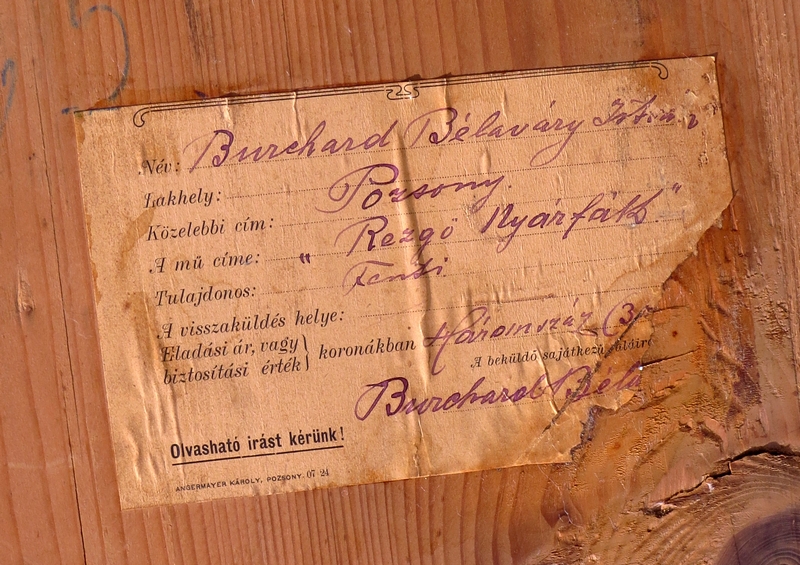 Név: Burchard Bélaváry
Lakhely: Pozsony.
Közelebbi cím:
A mű címe: " Rezgő Nyárfák"
Tulajdonos: Fenti
A visszaküldés helye:
Eladási ár, vagy
biztosítási érték } koronákban Háromszáz (3
A beküldő sajátkezű
Burchard Béla
Olvasható irást kérünk!
ANGERMAYER KÁROLY, POZSONY. 07·24